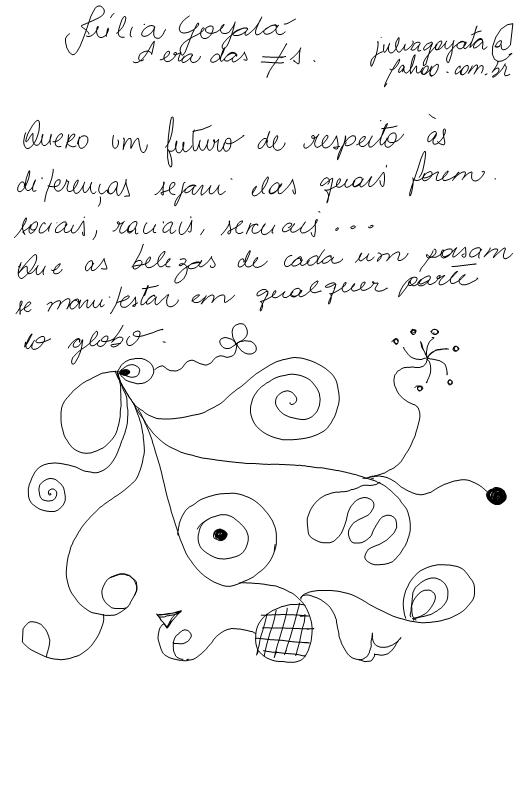 Júlia Goyatá
A era das ≠s.
juliagoyata@
yahoo.com.br
Quero um futuro de respeito às
diferenças sejam elas quais forem.
sociais, raciais, sexuais...
Que as belezas de cada um possam
se manifestar em qualquer parte
do globo.